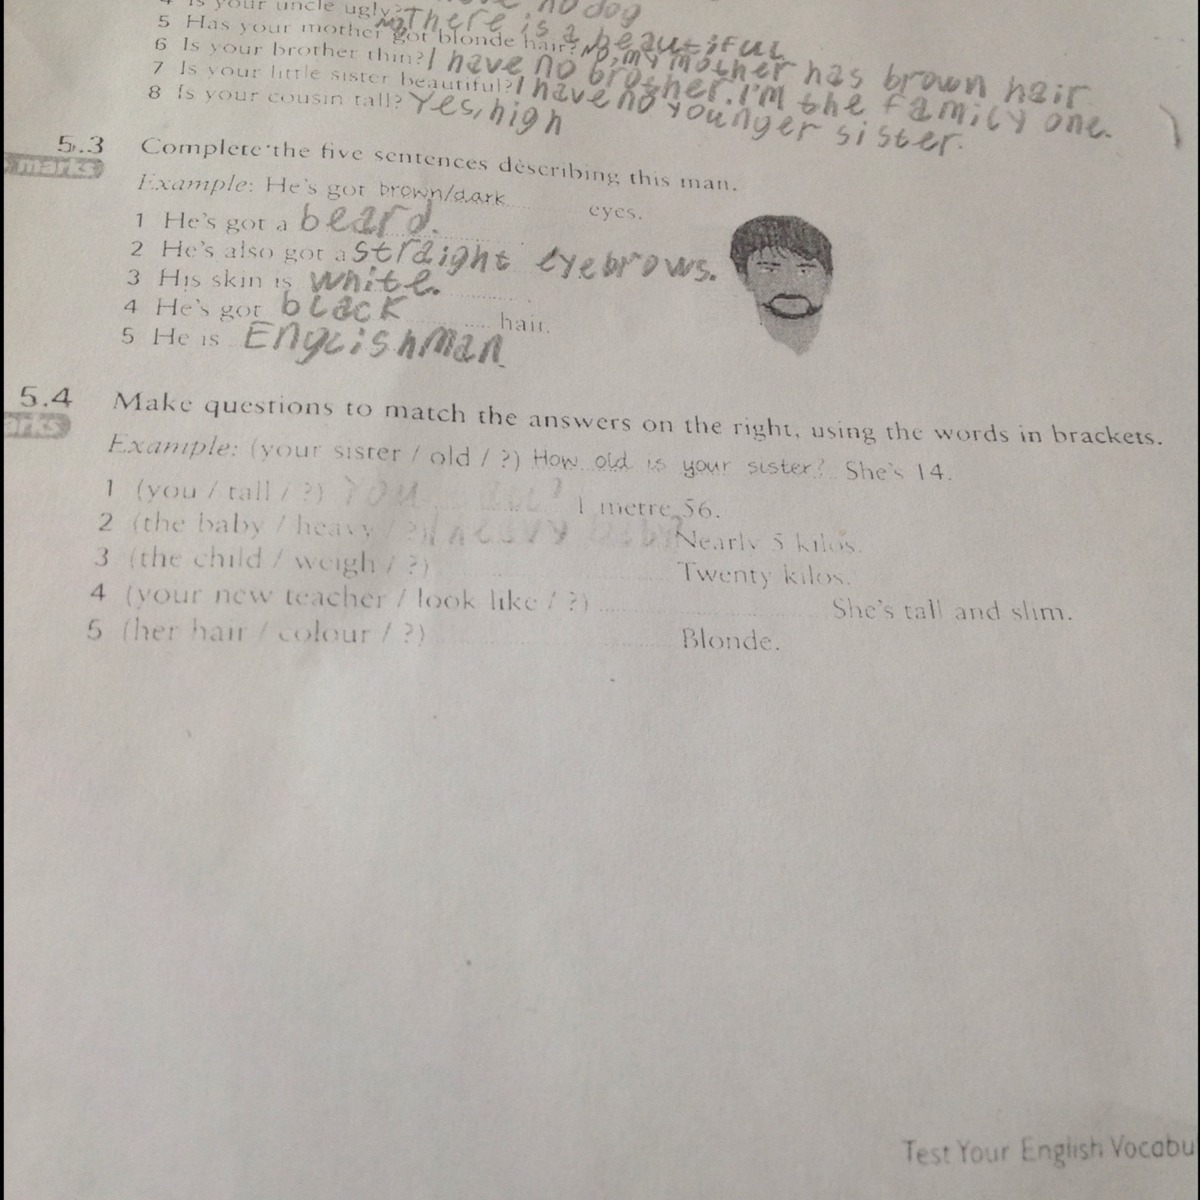 4 Is your uncle ugly? no dog
No, There is a beautiful
5 Has your mother got blonde hair? No, my mother has brown hair
6 Is your brother thin? I have no brother. I'm the family one.
7 Is your little sister beautiful? I have no younger sister.
8 Is your cousin tall? Yes, high
5.3 Complete the five sentences describing this man.
marks
Example: He's got brown/dark eyes.
1 He's got a beard.
2 He's also got a straight eyebrows.
3 His skin is white.
4 He's got black hair.
5 He is Englishman
5.4 Make questions to match the answers on the right, using the words in brackets.
arks
Example: (your sister / old / ?) How old is your sister? She's 14.
1 (you / tall / ?) You ? 1 metre 56.
2 (the baby / heavy / ?) heavy baby? Nearly 5 kilos.
3 (the child / weigh / ?) Twenty kilos.
4 (your new teacher / look like / ?) She's tall and slim.
5 (her hair / colour / ?) Blonde.
Test Your English Vocabu